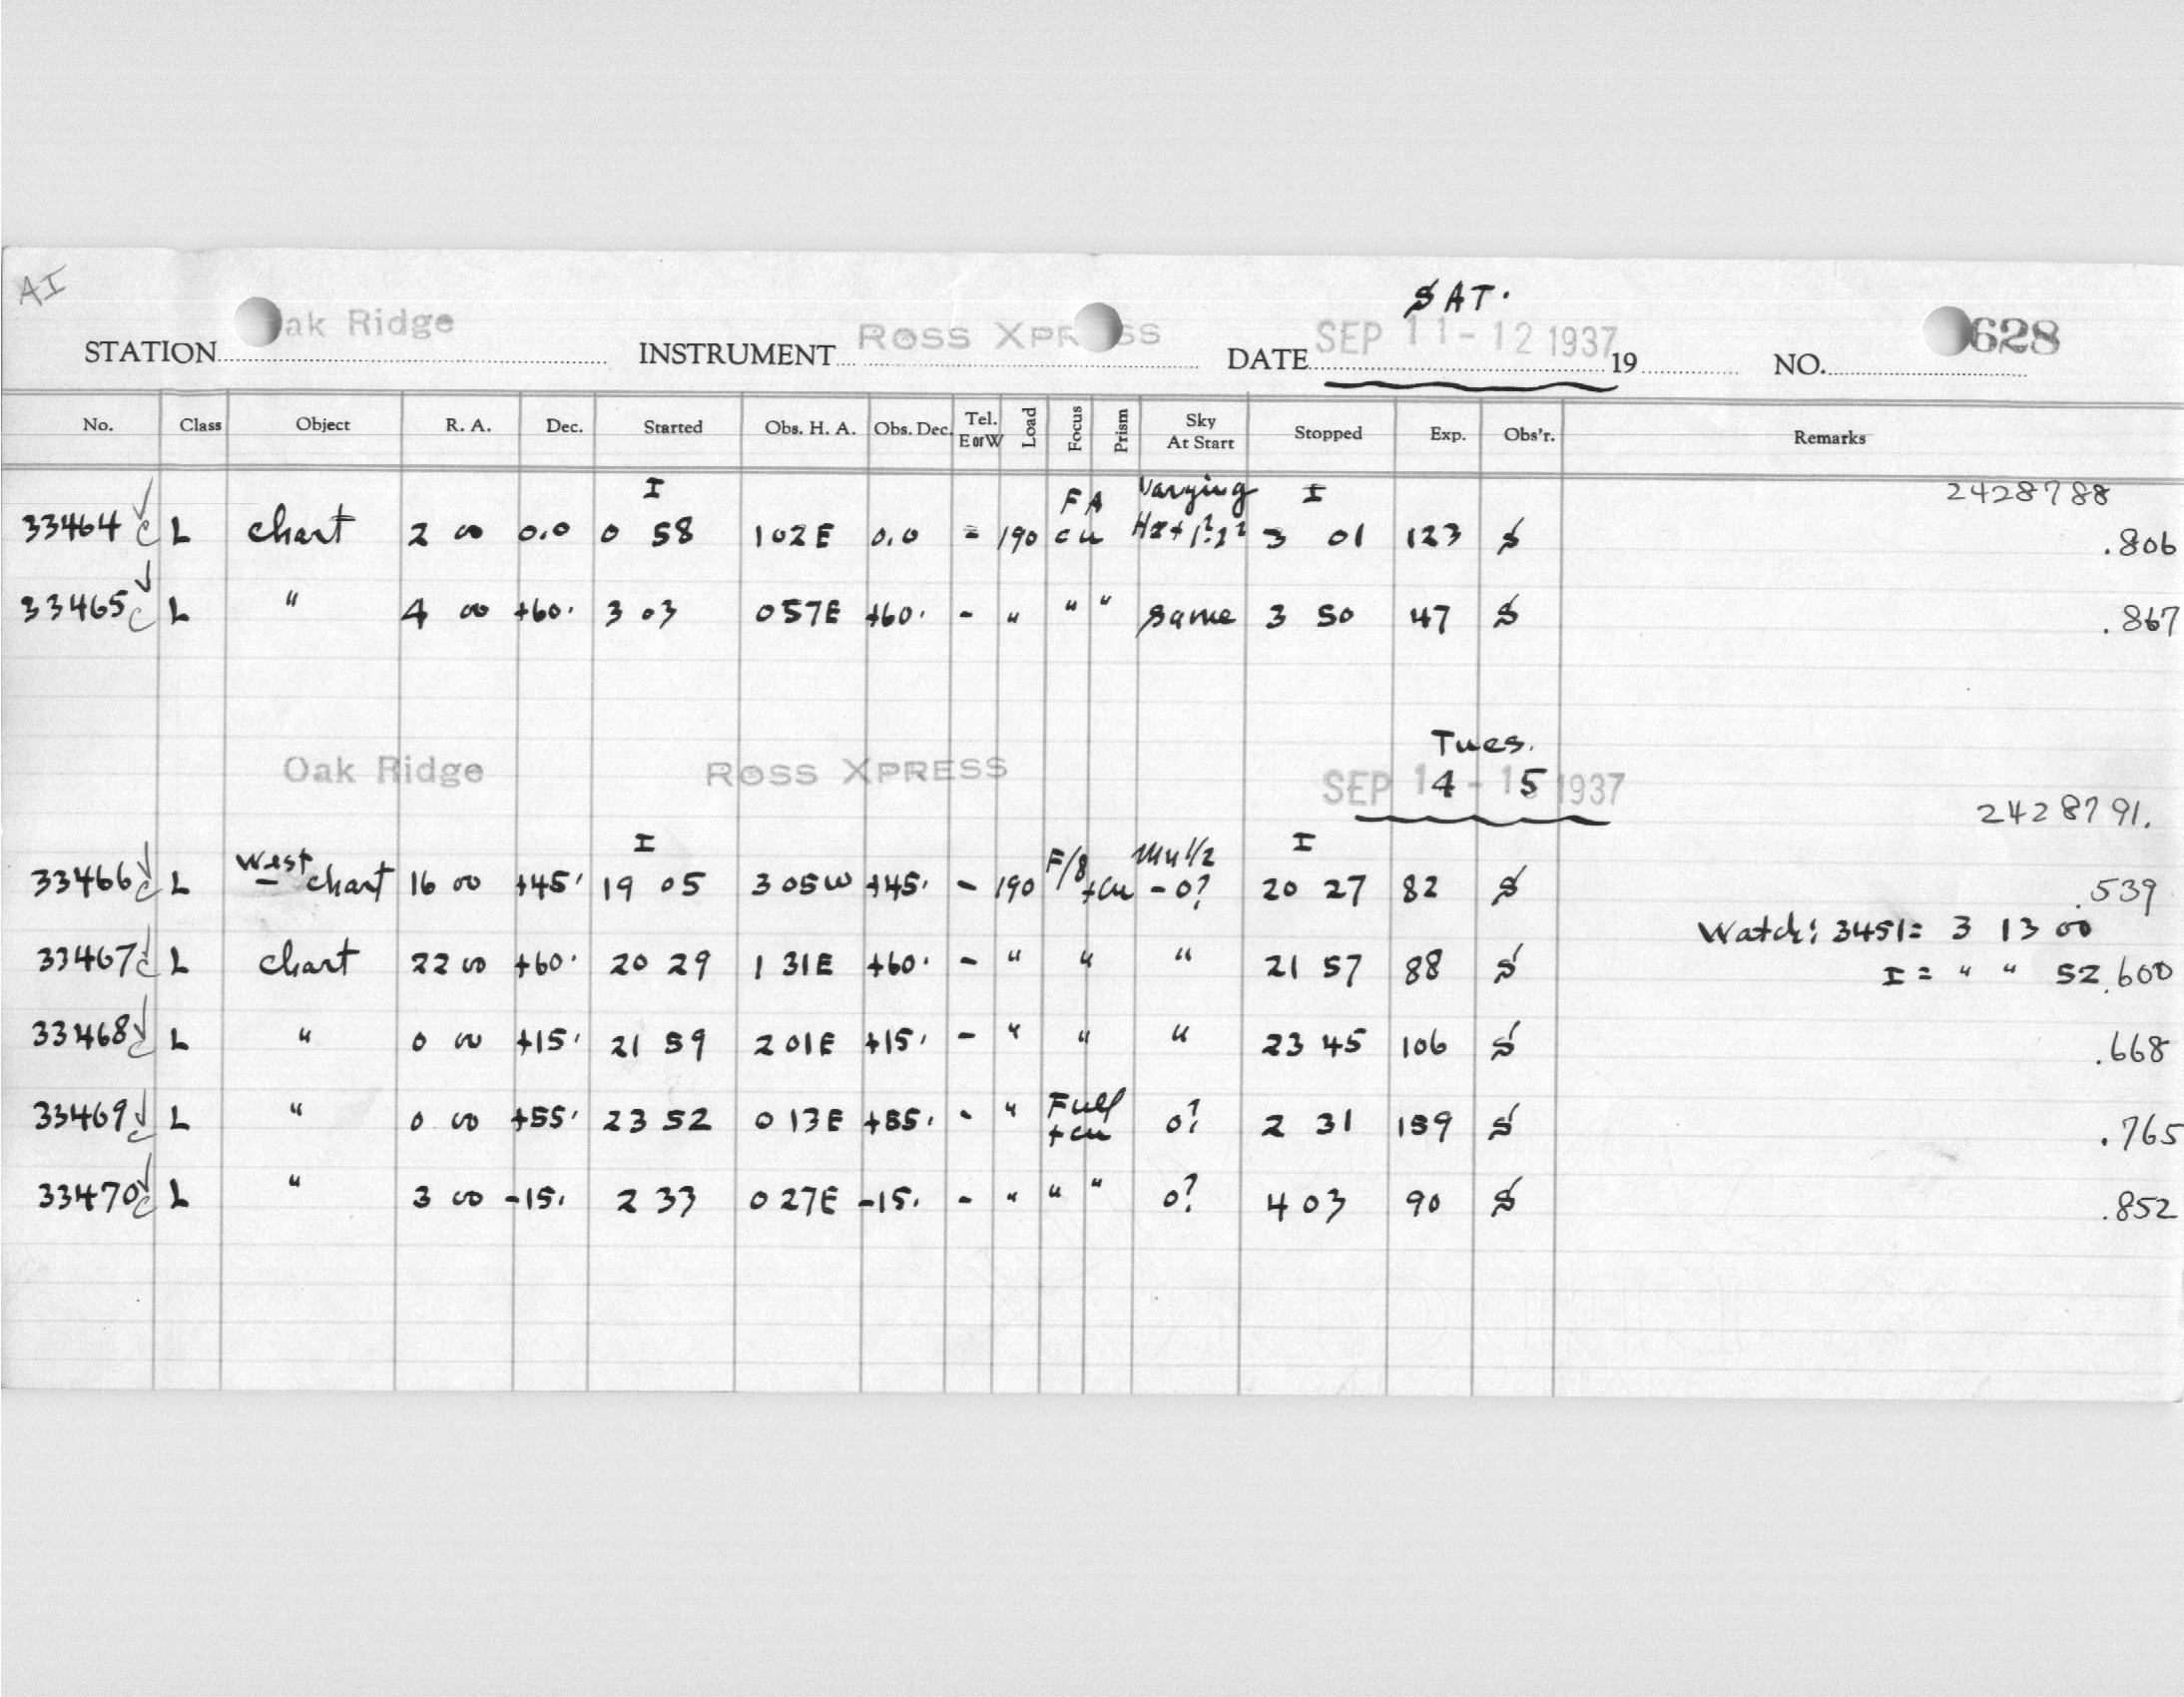 AI
SAT.
STATION Oak Ridge INSTRUMENT Ross XPRESS DATE SEP 11-12 1937 19 NO. 628
No. Class Object R. A. Dec. Started Obs. H. A. Obs. Dec. Tel. E or W Load Focus Prism Sky At Start Stopped Exp. Obs'r. Remarks
I FA Varying I 2428788
33464 c L chart 2 00 0.0 0 58 1 02E 0.0 = 190 cu 3 01 123 S .806
33465 c L " 4 00 +60. 3 03 0 57E +60. - " " " same 3 50 47 S .867
Tues.
Oak Ridge Ross XPRESS SEP 14-15 1937
2428791.
I I
33466 c L West chart 16 00 +45. 19 05 3 05W +45. - 190 F/8 +cu - 0? 20 27 82 S .539
Watch: 3451= 3 13 00
33467 c L chart 22 00 +60. 20 29 1 31E +60. - " " " 21 57 88 S I = " " 52 .600
33468 c L " 0 00 +15. 21 59 2 01E +15. - " " " 23 45 106 S .668
33469 c L " 0 00 +55. 23 52 0 13E +55. - " Full +cu 0? 2 31 159 S .765
33470 c L " 3 00 -15. 2 33 0 27E -15. - " " " 0? 4 03 90 S .852